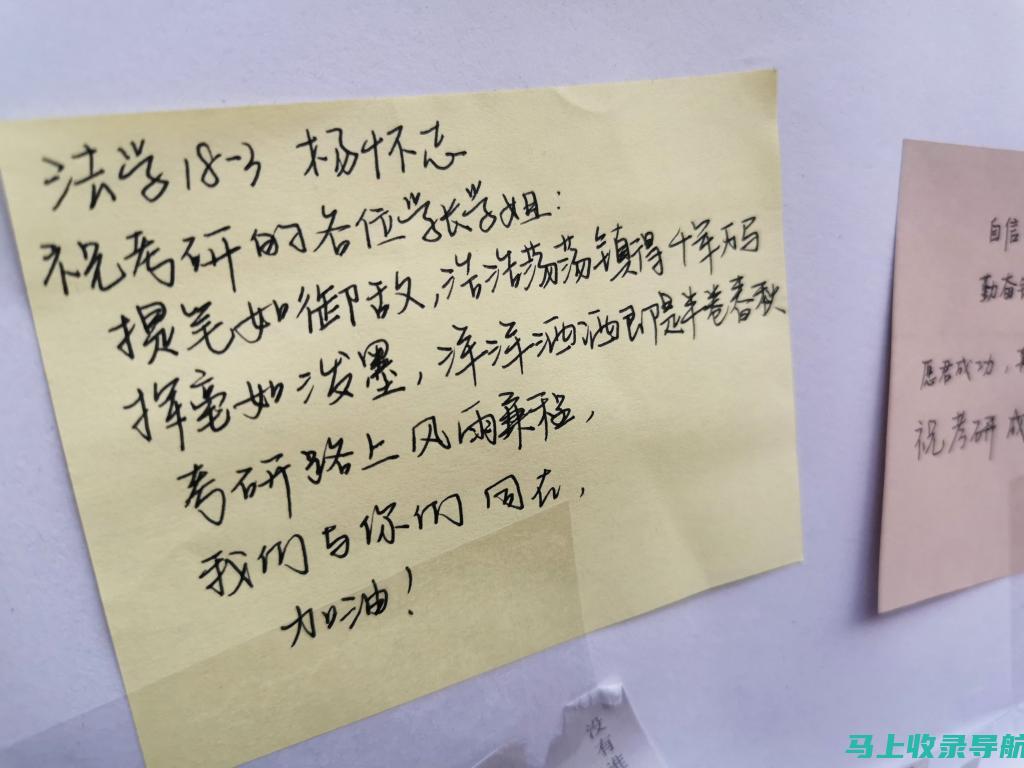 法学18-3 杨怀志
祝考研的各位学长学姐:
提笔如御敌,浩浩荡荡镇得千军万码
挥毫如泼墨,洋洋洒洒即是半卷春秋
考研路上风雨兼程,
我们与你们同在,
加油!
自信
勤奋
愿君成功,
祝考研成
没有谁
马上收录导航